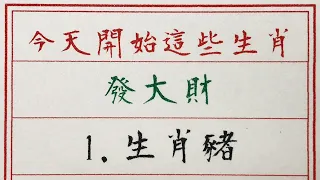 今天開始這些生肖
發大財
1.生肖豬